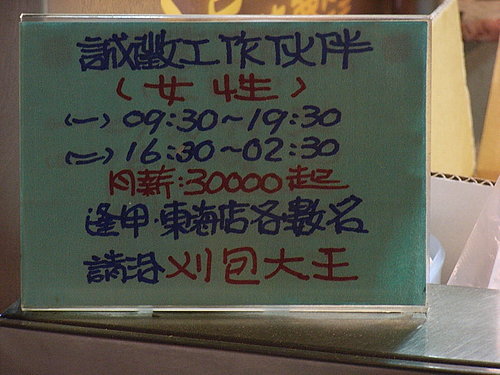 誠徵工作伙伴
（女性）
(一) 09:30~19:30
(二) 16:30~02:30
月薪:30000起
逢甲·東海店各數名
請洽刈包大王